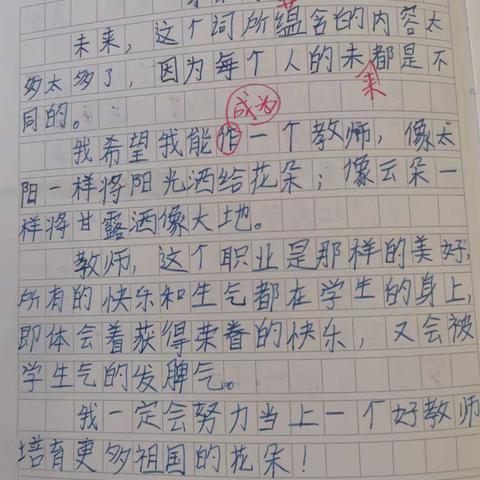 未来，这个词所蕴含的内容太
多太多了，因为每个人的未都是不
来
同的。
成为
我希望我能作一个教师，像太
阳一样将阳光洒给花朵；像云朵一
样将甘露洒像大地。
教师，这个职业是那样的美好，
所有的快乐和生气都在学生的身上，
即体会着获得荣眷的快乐，又会被
学生气的发脾气。
我一定会努力当上一个好教师
培育更多祖国的花朵！